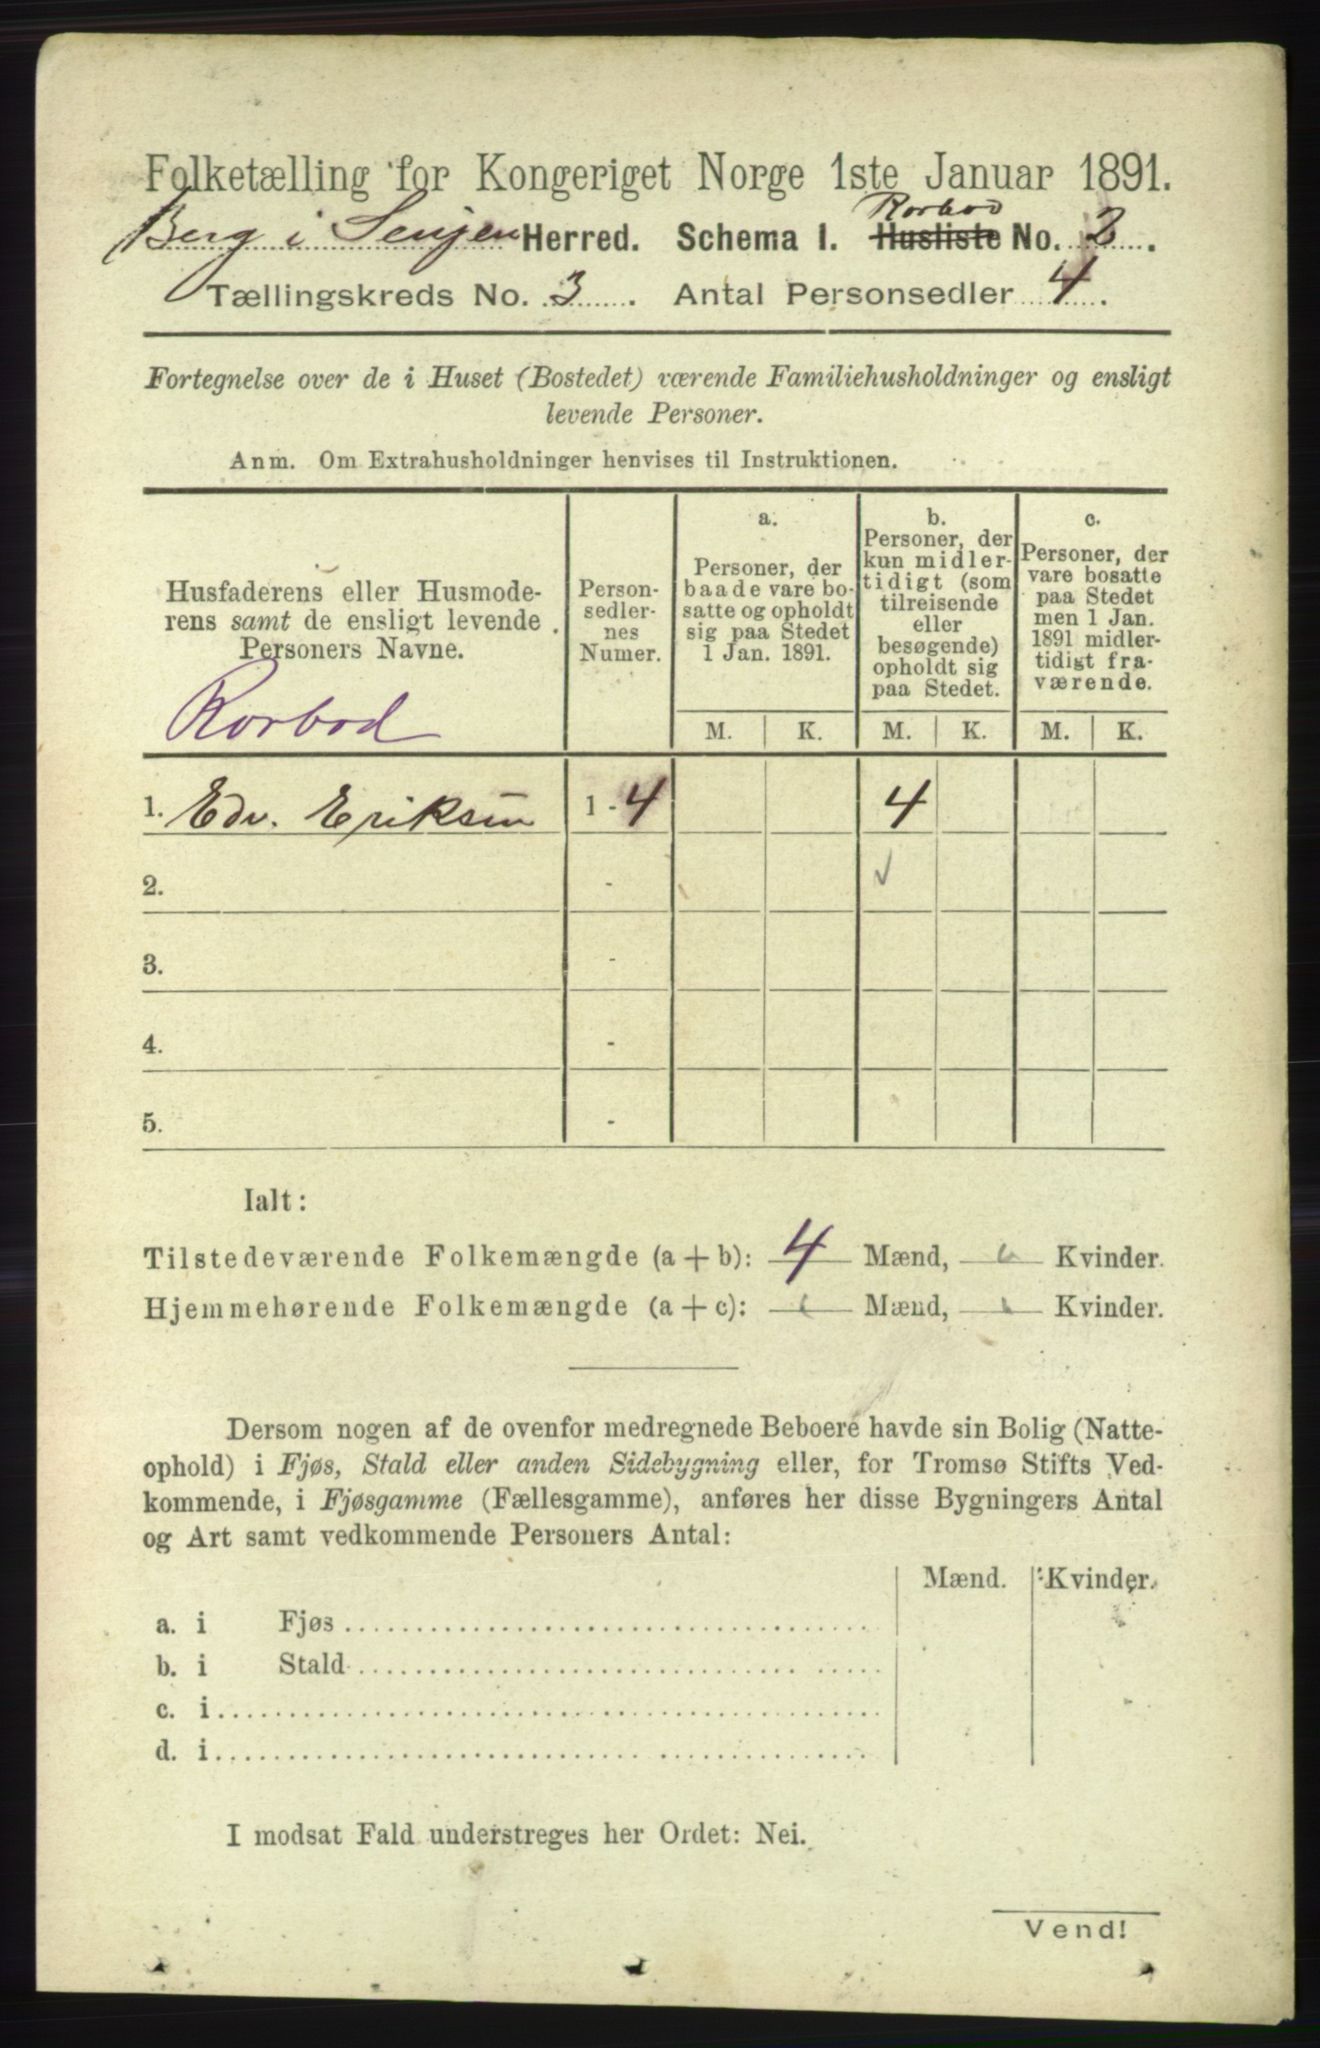 Folketælling for Kongeriget Norge 1ste Januar 1891.
Rorbod
Berg i Senjen Herred. Schema I. Husliste No. 2.
Tællingskreds No. 3. Antal Personsedler 4.
Fortegnelse over de i Huset (Bostedet) værende Familiehusholdninger og ensligt
levende Personer.
Anm. Om Extrahusholdninger henvises til Instruktionen.
Husfaderens eller Husmode-
rens samt de ensligt levende
Personers Navne.
Rorbod
Person-
sedler-
nes
Numer.
a.
Personer, der
baade vare bo-
satte og opholdt
sig paa Stedet
1 Jan. 1891.
b.
Personer, der
kun midler-
tidigt (som
tilreisende
eller
besøgende)
opholdt sig
paa Stedet.
c.
Personer, der
vare bosatte
paa Stedet
men 1 Jan.
1891 midler-
tidigt fra-
værende.
M. K. M. K. M. K.
1. Edv. Eriksen 1 - 4 4
2. - ✓
3. -
4. -
5. -
Ialt:
Tilstedeværende Folkemængde (a + b): 4 Mænd, Kvinder.
Hjemmehørende Folkemængde (a + c): Mænd, Kvinder.
Dersom nogen af de ovenfor medregnede Beboere havde sin Bolig (Natte-
ophold) i Fjøs, Stald eller anden Sidebygning eller, for Tromsø Stifts Ved-
kommende, i Fjøsgamme (Fællesgamme), anføres her disse Bygningers Antal
og Art samt vedkommende Personers Antal:
Mænd. Kvinder.
a. i Fjøs
b. i Stald
c. i
d. i
I modsat Fald understreges her Ordet: Nei.
Vend!